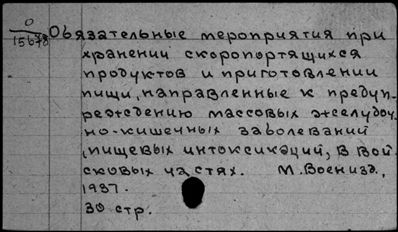 О
15678
Обязательные мероприятия при
хранении скоропортящихся
продуктов и приготовлении
пищи, направленные к предуп-
реждению массовых желудоч-
но-кишечных заболеваний
, пищевых интоксикаций, в вой
сковых частях. М. Военизд.,
1937.
30 стр.